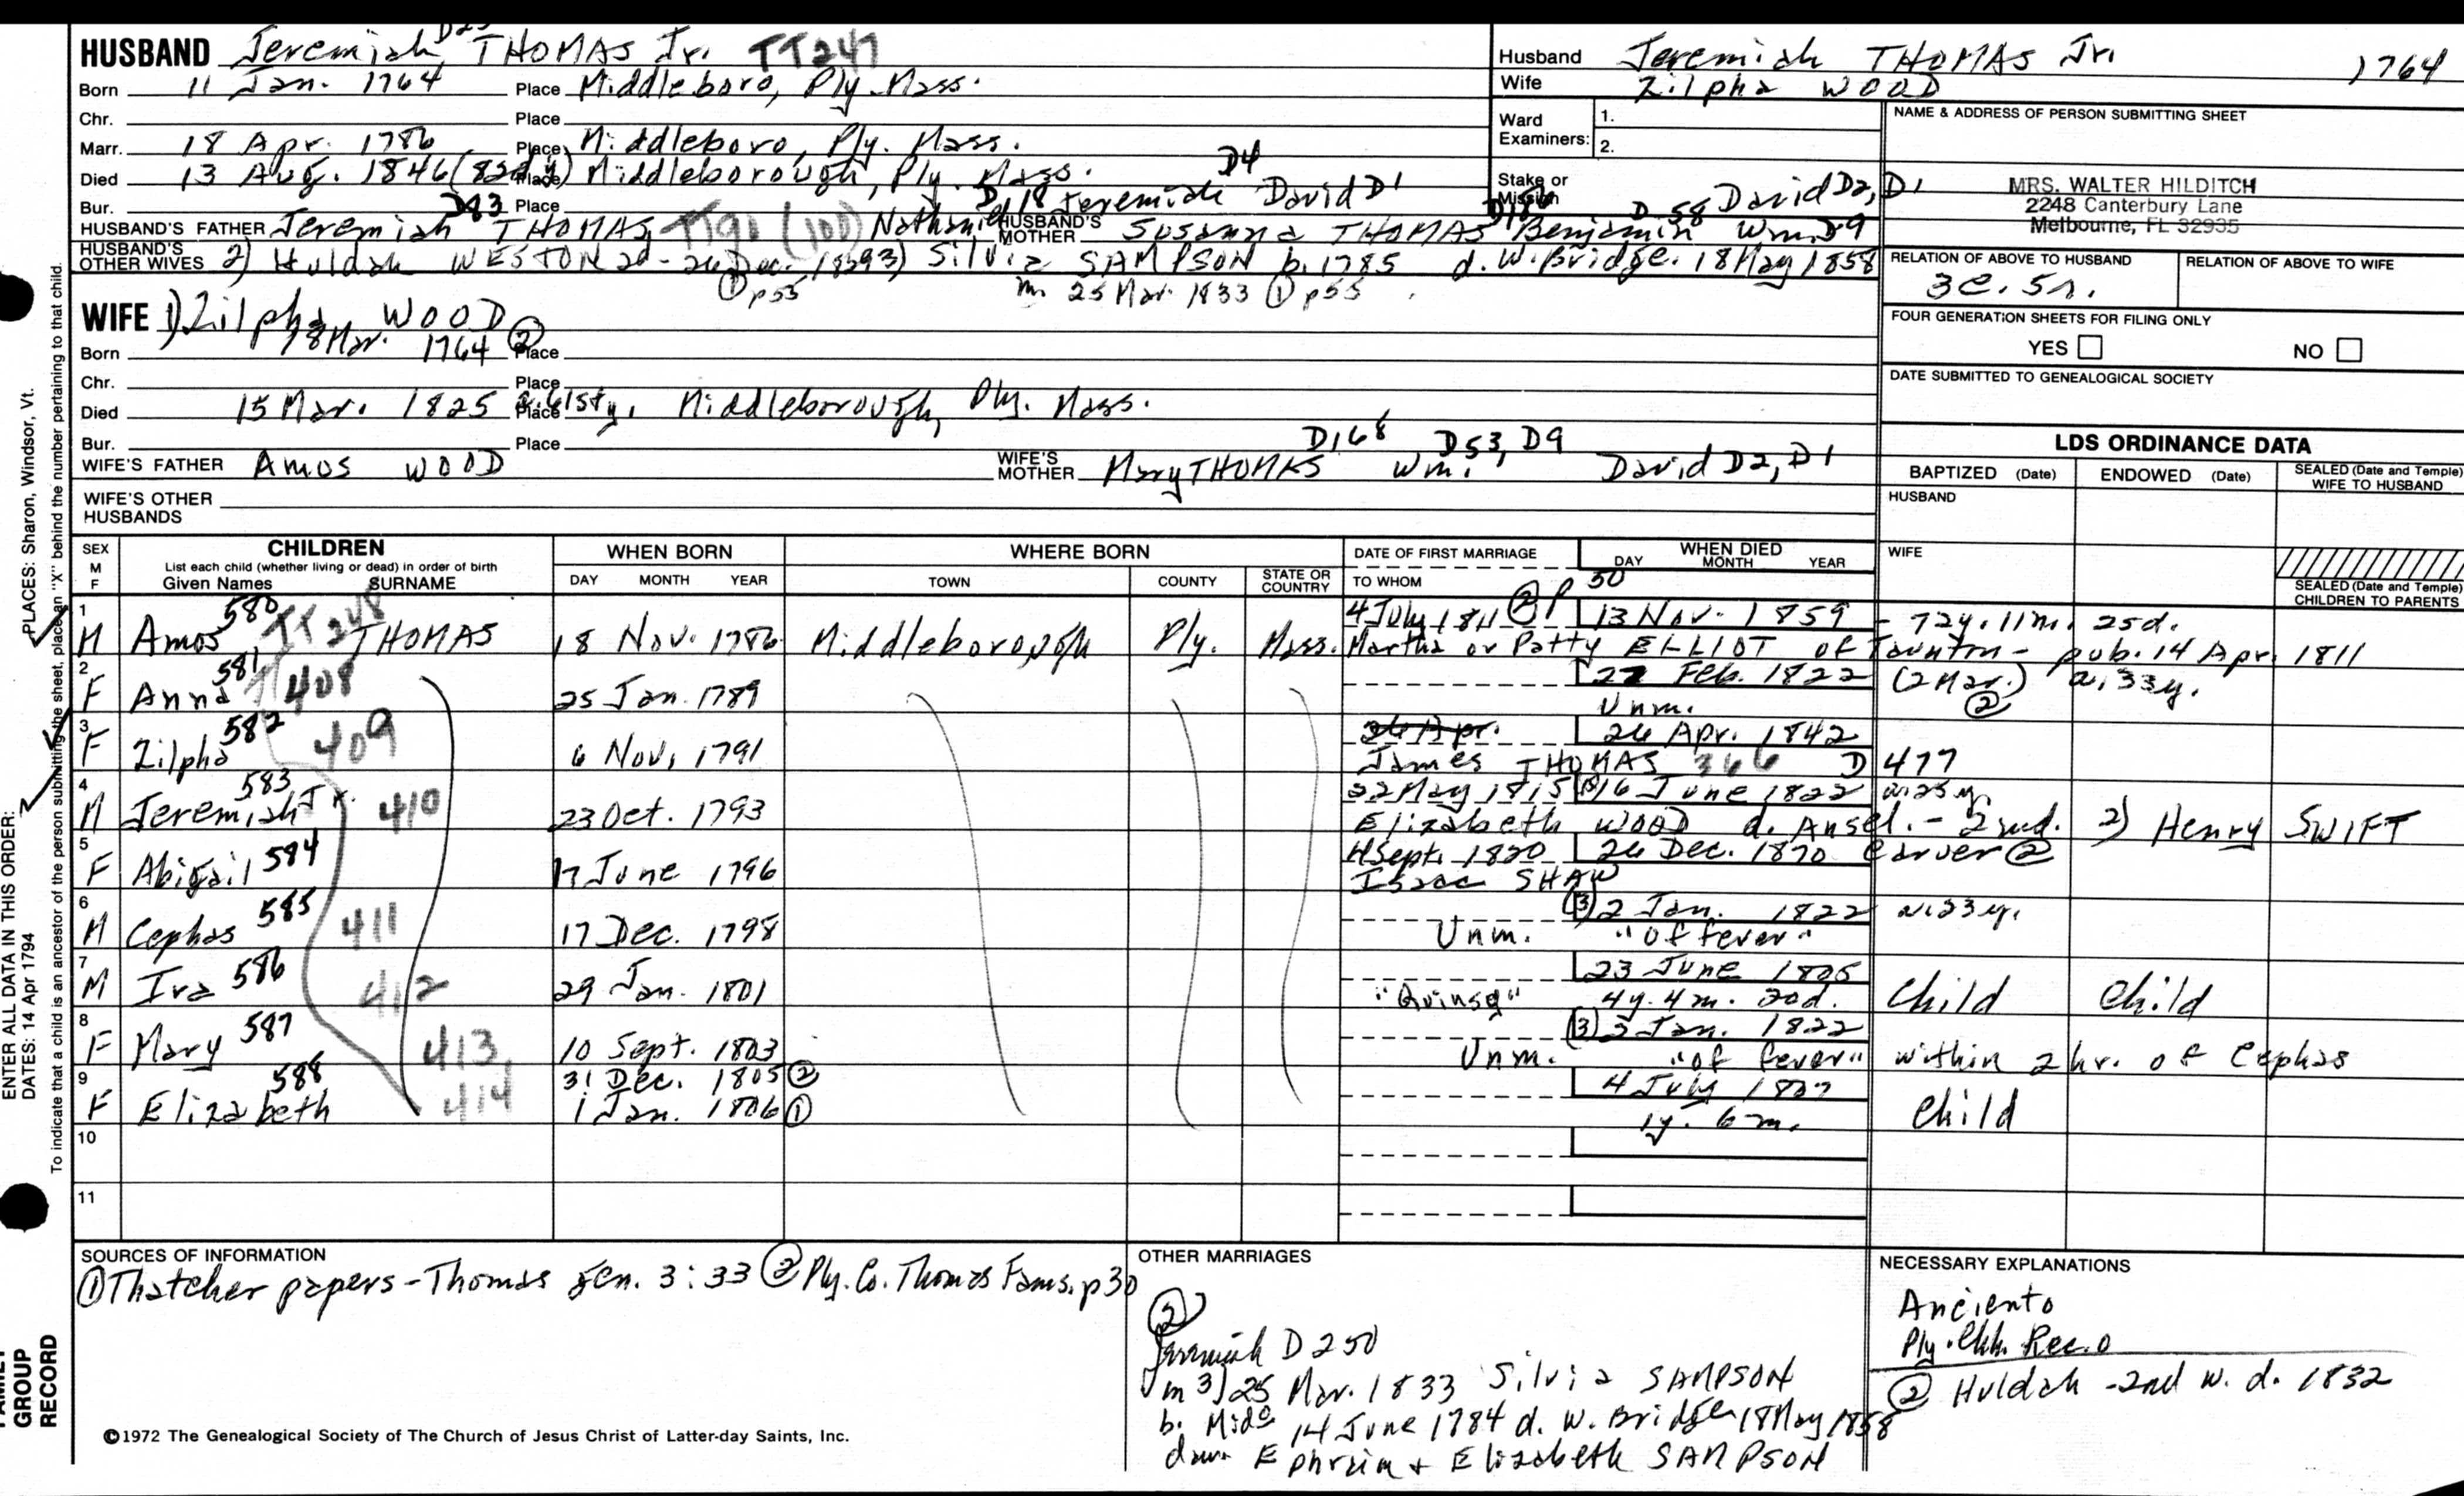 HUSBAND Jeremiah THOMAS Jr. TT247
Born 11 Jan. 1764 Place Middleboro, Ply. Mass.
Chr. Place
Marr. 18 Apr. 1786 Place Middleboro, Ply. Mass.
Died 13 Aug. 1846 Place Middleborough, Ply. Mass.
Bur. Place
D83 D18 Jeremiah D4 David D1
HUSBAND'S FATHER Jeremiah THOMAS TT90 (100) Nathaniel HUSBAND'S MOTHER Susanna THOMAS Benjamin D58 Wm. D9 David D2, D1
HUSBAND'S OTHER WIVES 2) Huldah WESTON 3) Silvia SAMPSON b. 1785 d. W. Bridge. 18 May 1858
① p55 m. 25 Mar. 1833 ① p55
Husband Jeremiah THOMAS Jr. 1764
Wife Zilpha WOOD
Ward Examiners: 1.
2.
Stake or Mission
NAME & ADDRESS OF PERSON SUBMITTING SHEET
MRS. WALTER HILDITCH
2248 Canterbury Lane
Melbourne, FL 32935
RELATION OF ABOVE TO HUSBAND RELATION OF ABOVE TO WIFE
3c. 5r.
FOUR GENERATION SHEETS FOR FILING ONLY
YES NO
DATE SUBMITTED TO GENEALOGICAL SOCIETY
WIFE 1) Zilpha WOOD
Born 18 Mar. 1764 ② Place
Chr. Place
Died 15 Mar. 1825 Place Middleborough, Ply. Mass.
Bur. Place
D168 D53, D9
WIFE'S FATHER Amos WOOD WIFE'S MOTHER Mary THOMAS Wm. David D2, D1
WIFE'S OTHER HUSBANDS
LDS ORDINANCE DATA
BAPTIZED (Date) ENDOWED (Date) SEALED (Date and Temple) WIFE TO HUSBAND
HUSBAND
WIFE
SEALED (Date and Temple) CHILDREN TO PARENTS
SEX M F CHILDREN List each child (whether living or dead) in order of birth Given Names SURNAME
WHEN BORN DAY MONTH YEAR
WHERE BORN TOWN COUNTY STATE OR COUNTRY
DATE OF FIRST MARRIAGE TO WHOM
WHEN DIED DAY MONTH YEAR
1 M Amos 580 TT248 THOMAS 18 Nov. 1786 Middleborough Ply. Mass. 4 July 1811 ② P 50 13 Nov. 1859 - 72y. 11m. 25d.
Martha or Patty ELLIOT of Taunton - pub. 14 Apr. 1811
2 F Anna 581 408 25 Jan. 1789 27 Feb. 1822 (2 Mar.) a. 33y.
Unm. ②
3 F Zilpha 582 409 6 Nov. 1791 26 Apr. 26 Apr. 1842
James THOMAS 366 D 477
4 M Jeremiah Jr. 583 410 23 Oct. 1793 22 May 1815 16 June 1822
Elizabeth WOOD d. Ansel. - 2nd. 2) Henry SWIFT
5 F Abigail 584 17 June 1796 Sept. 1820 26 Dec. 1870 Carver ②
Isaac SHAW
6 M Cephas 585 411 17 Dec. 1798 (3) 2 Jan. 1822 a. 23y.
Unm. "of fever"
7 M Ira 586 412 29 Jan. 1801 23 June 1805 Child Child
"Quinsy" 4y. 4m. 20d.
8 F Mary 587 413 10 Sept. 1803 (3) 3 Jan. 1822
Unm. "of fever" within 2 hr. of Cephas
9 F Elizabeth 588 414 31 Dec. 1805 ② 4 July 1807 Child
1 Jan. 1806 ① 1y. 6m.
10
11
SOURCES OF INFORMATION
① Thatcher papers - Thomas gen. 3:33 ② Ply. Co. Thomas Fams. p30
©1972 The Genealogical Society of The Church of Jesus Christ of Latter-day Saints, Inc.
OTHER MARRIAGES
②
Jeremiah D250
m 3) 25 Mar. 1833 Silvia SAMPSON
b. Midd 14 June 1784 d. W. Bridge 18 May 1858
dau. Ephraim + Elizabeth SAMPSON
NECESSARY EXPLANATIONS
Ply. Chh. Rec.
② Huldah - 2nd w. d. 1832
ENTER ALL DATA IN THIS ORDER:
DATES: 14 Apr 1794 PLACES: Sharon, Windsor, Vt.
To indicate that a child is an ancestor of the person submitting the sheet, place an "X" behind the number pertaining to that child.
GROUP
RECORD